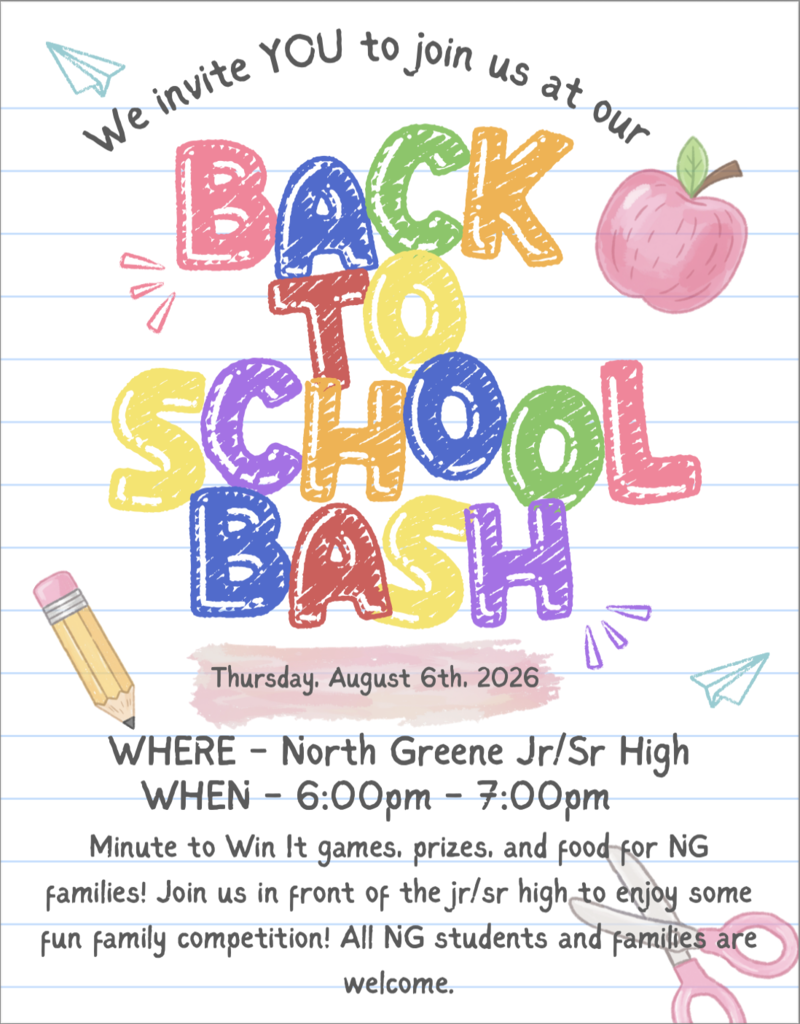 We invite YOU to join us at our
BACK
TO
SCHOOL
BASH
Thursday, August 6th, 2026
WHERE - North Greene Jr/Sr High
WHEN - 6:00pm - 7:00pm
Minute to Win It games, prizes, and food for NG
families! Join us in front of the jr/sr high to enjoy some
fun family competition! All NG students and families are
welcome.